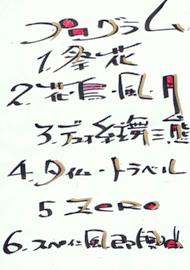 プログラム
1. 祭花
2. 花鳥風月
3.
4. タイム・トラベル
5 ZERO
6. スペイン風